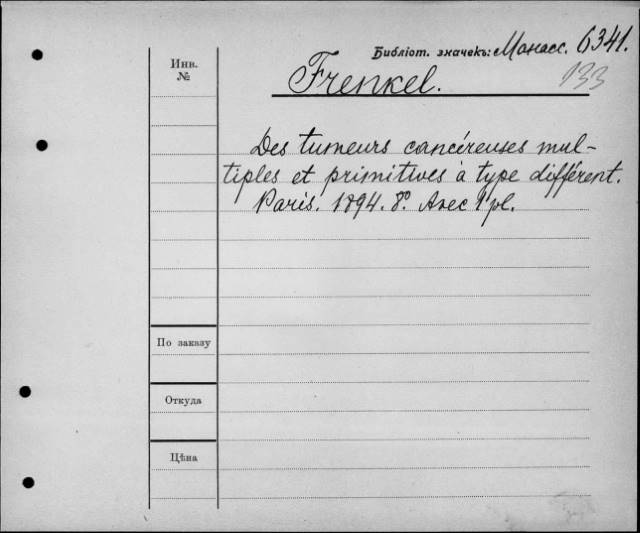 Библіот. значекъ: Манасс. 6341.
133
Инв.
№
Frenkel.
Des tumeurs cancéreuses mul-
tiples et primitives à type différent.
Paris. 1894. 8º. Avec 1 pl.
По заказу
Откуда
Цѣна